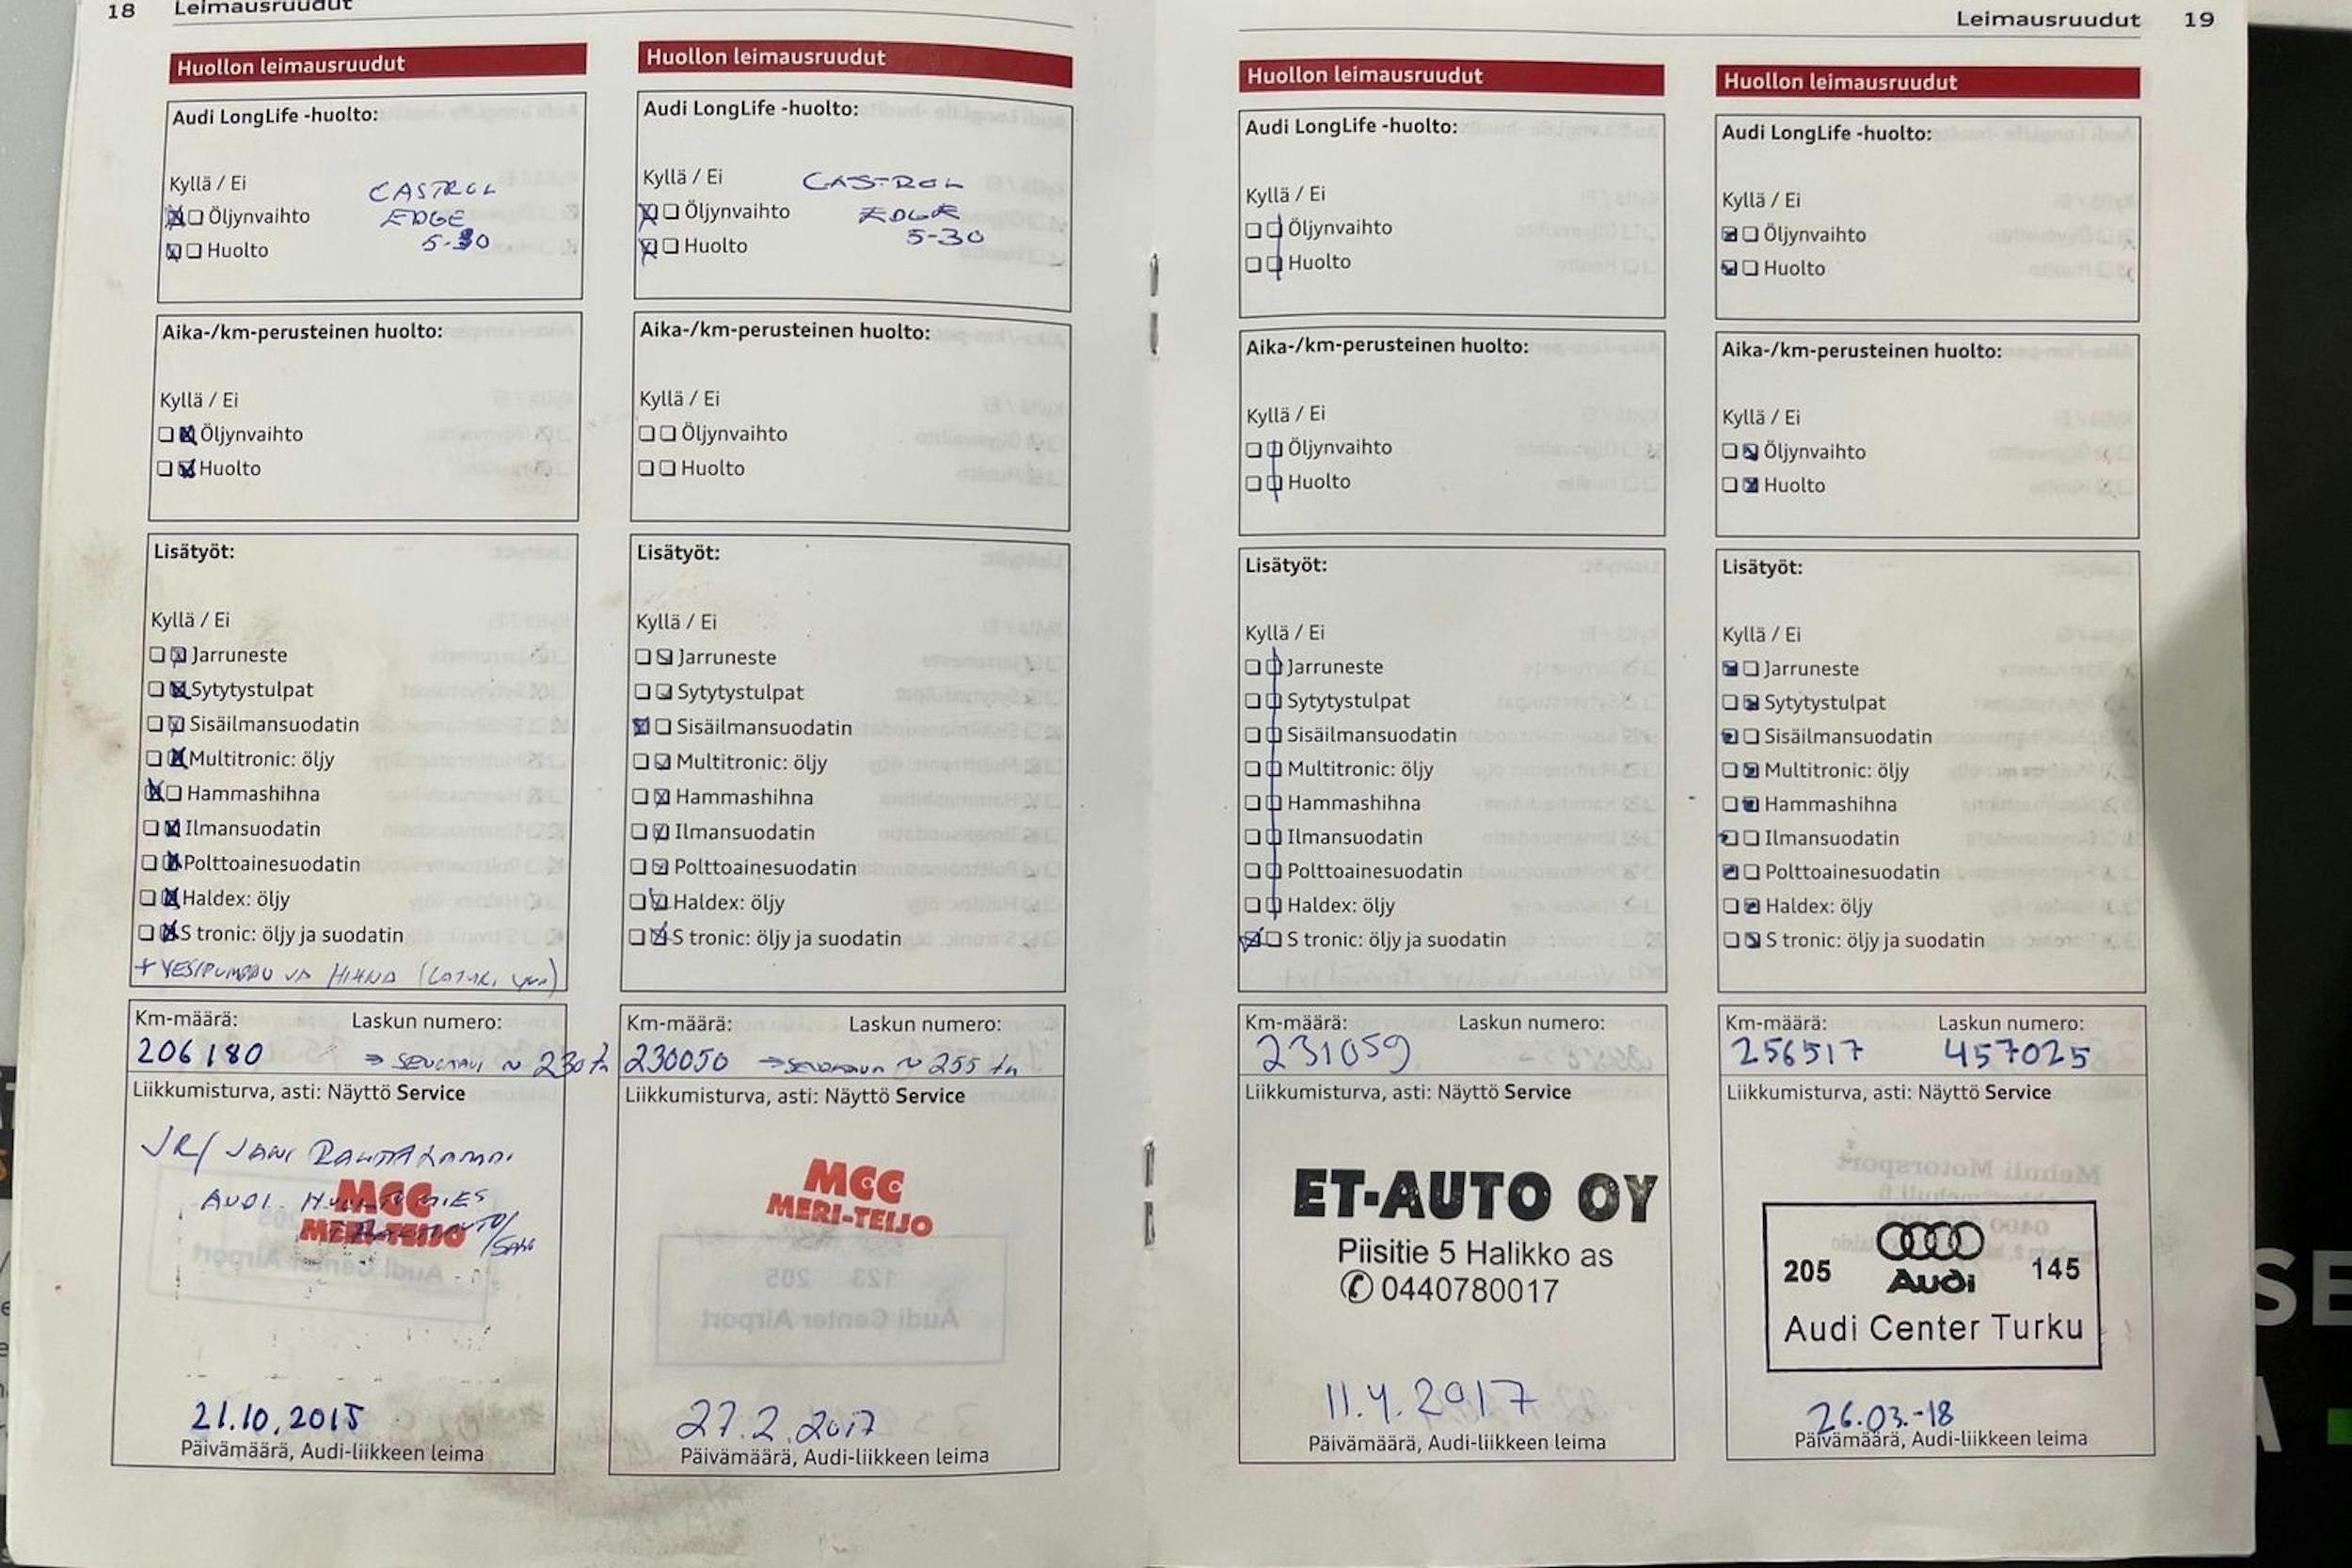 18 Leimausruudut
Huollon leimausruudut
Audi LongLife -huolto:
Kyllä / Ei
CASTROL
Öljynvaihto
EDGE
5-30
Huolto
Aika-/km-perusteinen huolto:
Kyllä / Ei
Öljynvaihto
Huolto
Lisätyöt:
Kyllä / Ei
Jarruneste
Sytytystulpat
Sisäilmansuodatin
Multitronic: öljy
Hammashihna
Ilmansuodatin
Polttoainesuodatin
Haldex: öljy
S tronic: öljy ja suodatin
+ VESIPUMPPU JA HIHNA
Km-määrä: Laskun numero:
206180 ⇒ SEURAAVA ~ 230 tn
Liikkumisturva, asti: Näyttö Service
JR/ JANI RAUTALAMMI
AUDI HUOLTOMIES
MCC
MERI-TEIJO
21.10.2015
Päivämäärä, Audi-liikkeen leima
Huollon leimausruudut
Audi LongLife -huolto:
Kyllä / Ei
CASTROL
Öljynvaihto
EDGE
5-30
Huolto
Aika-/km-perusteinen huolto:
Kyllä / Ei
Öljynvaihto
Huolto
Lisätyöt:
Kyllä / Ei
Jarruneste
Sytytystulpat
Sisäilmansuodatin
Multitronic: öljy
Hammashihna
Ilmansuodatin
Polttoainesuodatin
Haldex: öljy
S tronic: öljy ja suodatin
Km-määrä: Laskun numero:
230050 ⇒ SEURAAVA ~ 255 tn
Liikkumisturva, asti: Näyttö Service
MCC
MERI-TEIJO
27.2.2017
Päivämäärä, Audi-liikkeen leima
Leimausruudut 19
Huollon leimausruudut
Audi LongLife -huolto:
Kyllä / Ei
Öljynvaihto
Huolto
Aika-/km-perusteinen huolto:
Kyllä / Ei
Öljynvaihto
Huolto
Lisätyöt:
Kyllä / Ei
Jarruneste
Sytytystulpat
Sisäilmansuodatin
Multitronic: öljy
Hammashihna
Ilmansuodatin
Polttoainesuodatin
Haldex: öljy
S tronic: öljy ja suodatin
Km-määrä: Laskun numero:
231059
Liikkumisturva, asti: Näyttö Service
ET-AUTO OY
Piisitie 5 Halikko as
✆ 0440780017
11.4.2017
Päivämäärä, Audi-liikkeen leima
Huollon leimausruudut
Audi LongLife -huolto:
Kyllä / Ei
Öljynvaihto
Huolto
Aika-/km-perusteinen huolto:
Kyllä / Ei
Öljynvaihto
Huolto
Lisätyöt:
Kyllä / Ei
Jarruneste
Sytytystulpat
Sisäilmansuodatin
Multitronic: öljy
Hammashihna
Ilmansuodatin
Polttoainesuodatin
Haldex: öljy
S tronic: öljy ja suodatin
Km-määrä: Laskun numero:
256517 457025
Liikkumisturva, asti: Näyttö Service
205 Audi 145
Audi Center Turku
26.03.-18
Päivämäärä, Audi-liikkeen leima
SE
A